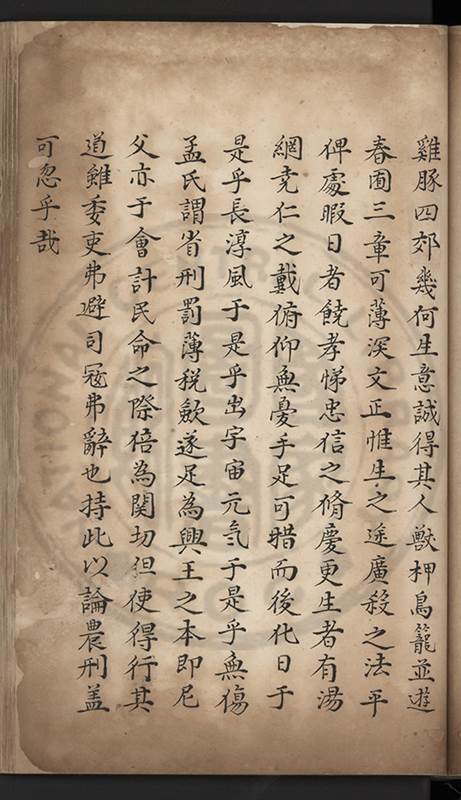 雞豚四郊幾何生意誠得其人獸柙鳥籠並遊
春囿三章可薄深文正惟生之途廣殺之法平
俾處暇日者饒孝悌忠信之脩慶更生者有湯
網堯仁之戴俯仰無憂手足可措而後化日于
是乎長淳風于是乎出宇宙元氣于是乎無傷
孟氏謂省刑罰薄稅歛遂足為興王之本即尼
父亦于會計民命之際倍為関切但使得行其
道雖委吏弗避司冦弗辭也持此以論農刑盖
可忽乎哉